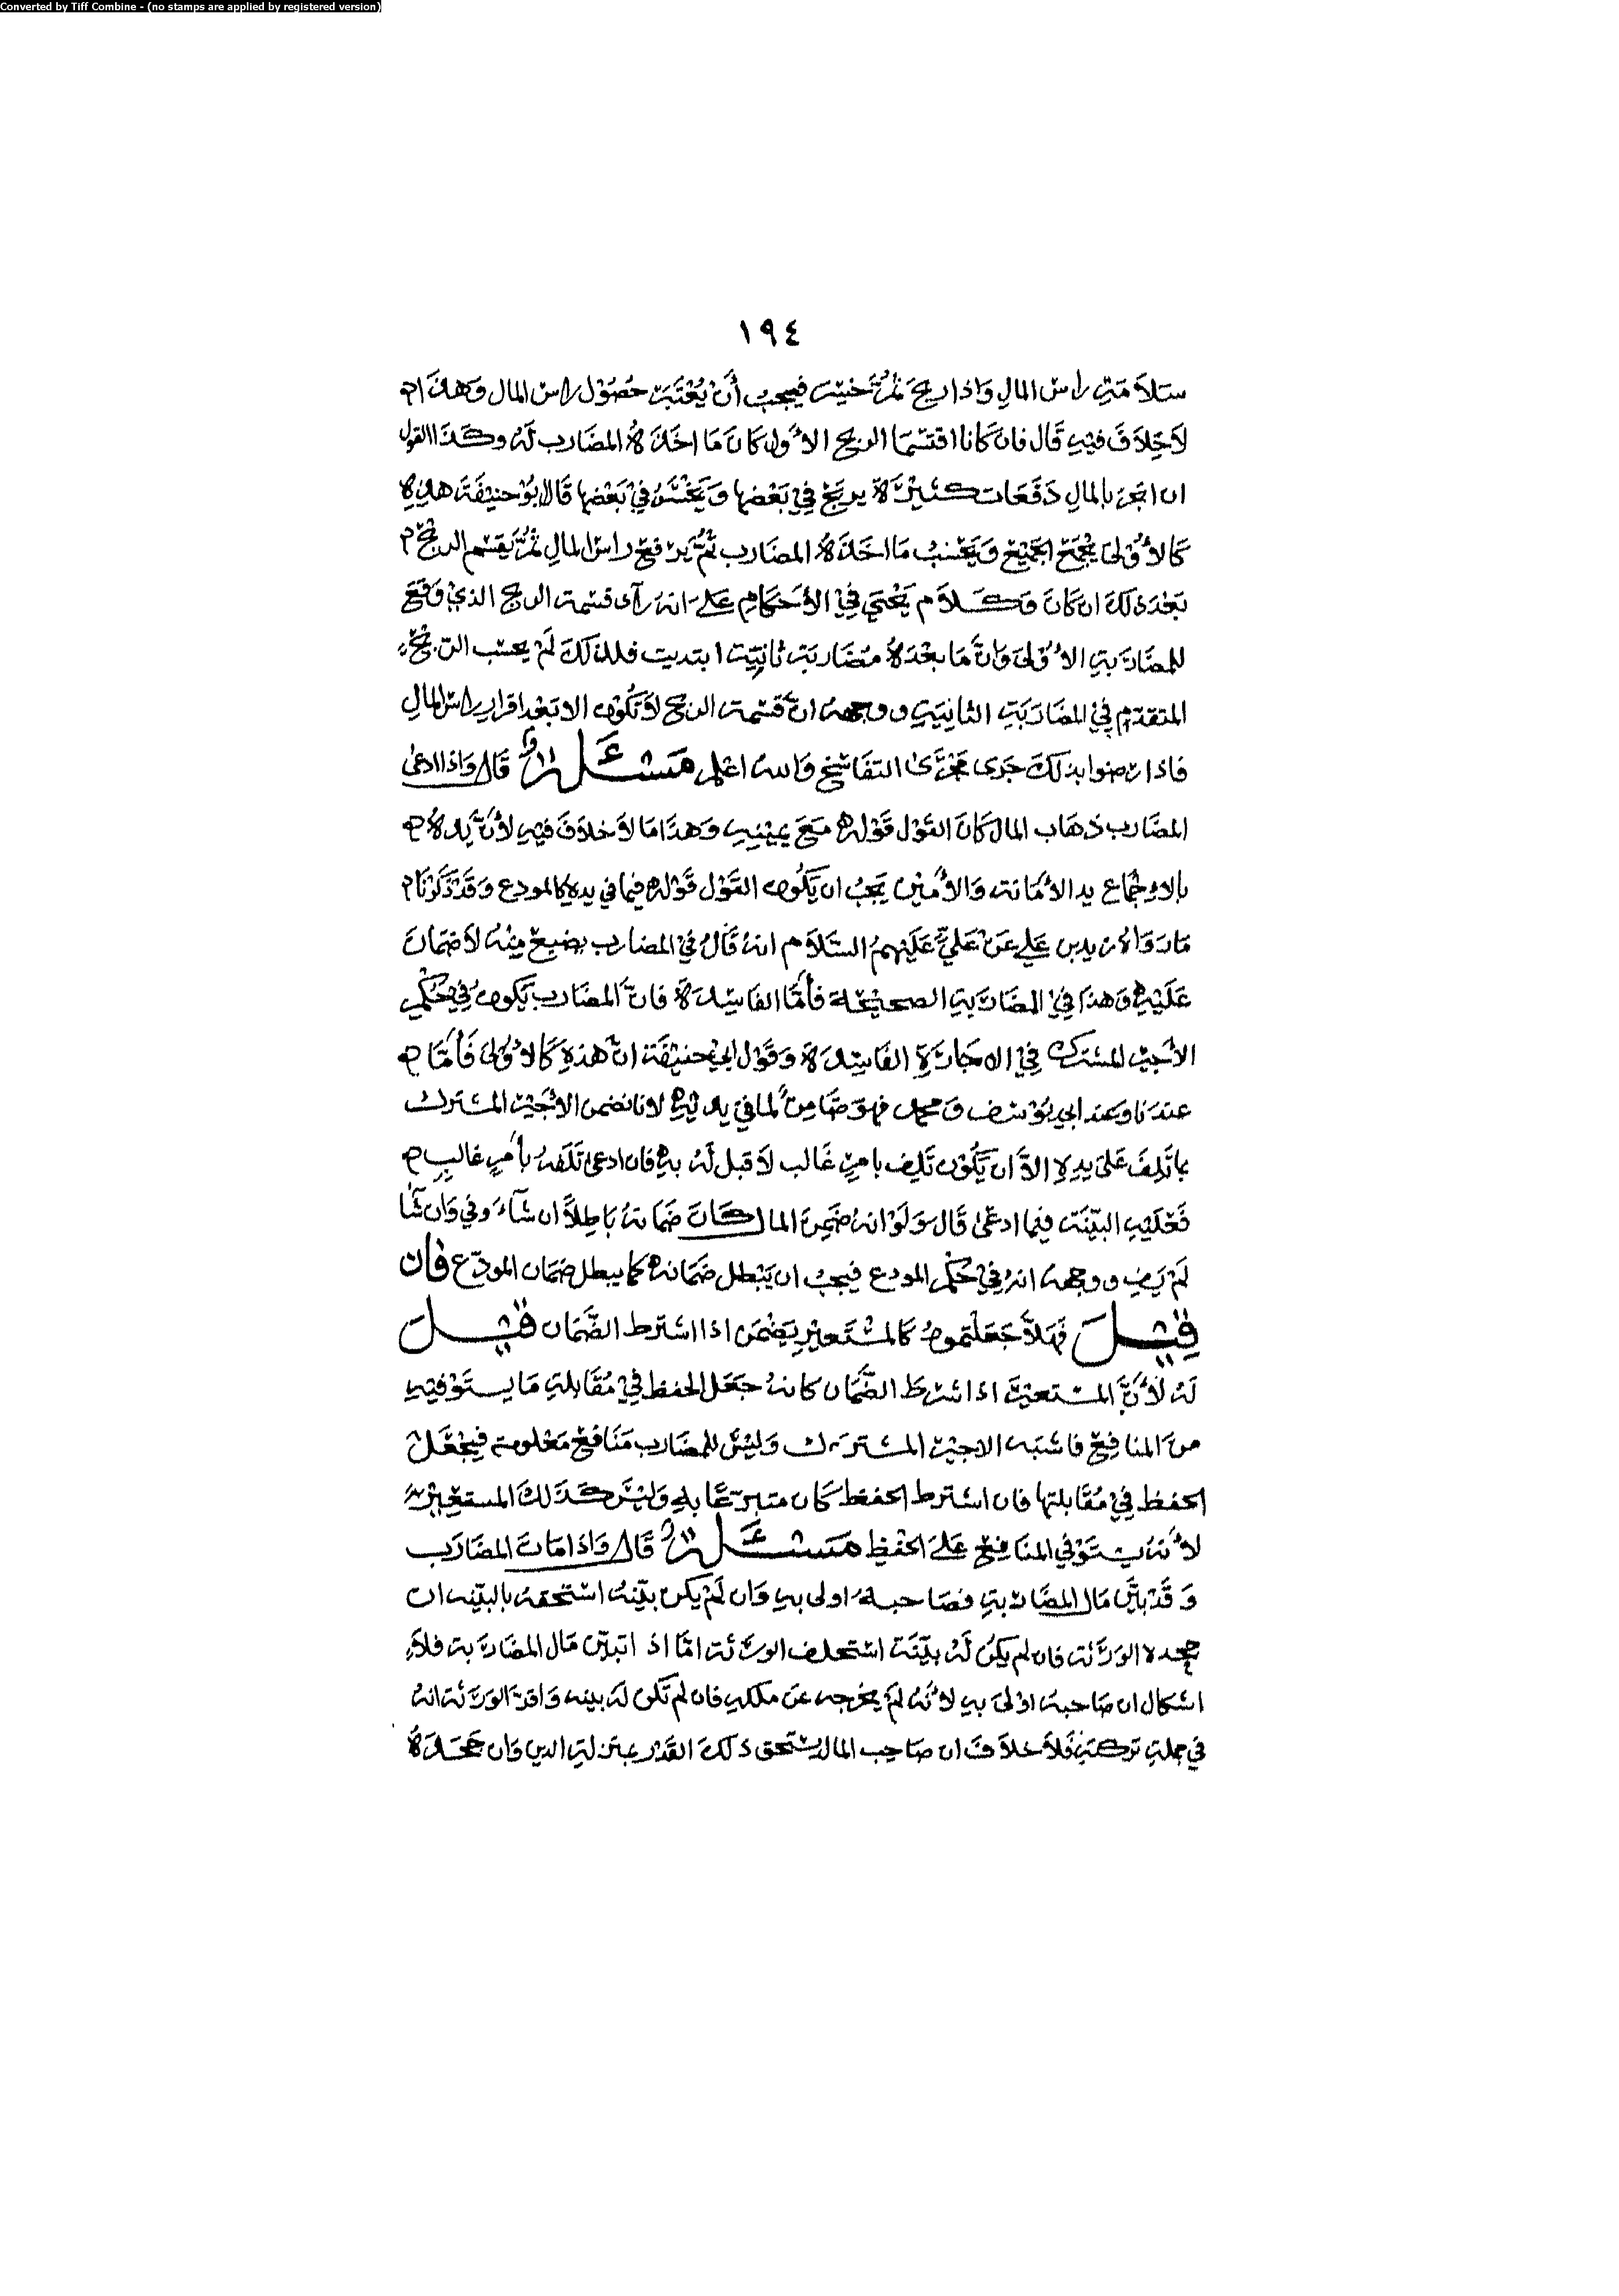 Converted by Tiff Combine - (no stamps are applied by registered version)
١٩٤
سَلاَمَةِ راس المالِ وَاذا ربحَ ثمُ خسِرَ فيجبُ أَنْ يُعْتَبَرَ حُصُوْل راس المال وَهذَا م
لاَ خِلاَفَ فيهِ قَال فان كَانا اقتسَما الربح الأول كانَ مَا اخَذَهُ المضَارب لَهُ وكَذَا القول
ان اتجرَ بالمالِ دَفَعَات كثيْرَة يربَح فِيْ بَعْضها وَيَخْسَرُ فيْ بَعْضها قَال ابوْ حَنيْفَةَ هذِهِ
كَالأُوْلىَ يجْمَع الجمَيْع وَيَحْسبُ مَا اخَذَهُ المضَارب ثمُّ يرْفع راس المالِ ثمُّ يَقسم الربْح م
بَعْدَ ذلكَ ان كَانَ وَكَلاَم يَحْيَى فيْ الأَحكَامِ عَلَى انهُ رَآى قسْمة الربح الذيْ وَقَعَ
للمضَارَبةِ الأُوْلىَ وَانَّ مَا بعْدَهُ مُضَاربَة ثانِيَة ابتديت فلذلكَ لَمْ يحسب الربحْ
المتقدم فيْ المضَارَبَةِ الثانِيَةِ ووجههُ انَّ قسْمة الربح لاَ تكُوْن الا بَعْد اقرار راس المالِ
فاذا رضوا بذلكَ جَرى مَجْرَى التفَاسخ وَالله اعْلم مَسْئَلَة قَال وَاذا ادعى
المضَارب ذهَاب المال كَانَ القَوْل قَوْله مَعَ يميْنِهِ وَهذا مَا لاَ خلاَفَ فيهِ لأنَّ يدهُ م
بالاِجمْاع يد الأمَانة وَالأَميْن يجَبُ ان يَكُوْن القَوْل قَوْله فيمْا في يده كالمودع وَقَدْ ذَكَرْنَا م
مَا رَوَاهُ زيد بن علي عَنْ عَليٍّ عَليْهمُ السَّلاَم انهُ قَالَ فيْ المضارب يضيعُ مِنْهُ لاَ ضمَانَ
عَلَيْهِ وَهذا فيْ المضَارَبةِ الصحيْحَة فأَمَّا الفَاسِدَة فانَّ المضَارب يَكوْنُ فيْ حُكْمِ
الأجيْر المشترك فِيْ الاجَارَةِ الفَاسِدَة وَقَوْل ابيْ حنيْفَة انَّ هَذهِ كَالأُوْلىَ فَأَمَّا م
عندَنا وَعند ابي يوْسف وَمحمد فهوَ ضَامِنٌ لما في يدَيْهِ لانا نضمن الأجَيْر المشترك
مَا تَلِفَ عَلىَ يدِهِ الاَّ ان يَكُوْن تَلِف بامرٍ غَالب لاَ قبل لَهُ بهِ فان ادعىَ تَلَفَهُ بأمرٍ غالبٍ م
فَعَليْهِ البيّنَة فيما ادعىَ قَال وَلَوْ انهُ ضَمِنَ المال كَانَ ضَمَانهُ بَاطِلاً ان شآءَ وفي وَان شآا
لَمْ يَفِ ووجههُ انهُ فيْ حُكْم المودع فيجبُ ان يَبْطل ضَمَانه كما يبطل ضمَان المودَع فان
قِيْلَ فَهَلاَّ جَعَلْتموهُ كَالمسْتَعيْرِ يَضْمَن اذا اشترط الضَّمَان قيْلَ
لَهُ لأنَّ المسْتعيْرَ اذا شَرط الضَّمَان كانهُ جَعَل الحفظ فيْ مُقَابلةِ مَا يستوْفيْهِ
منَ المنافِعْ فاشبَه الاجيْر المشترَك وَليْسَ للمضَارب مَنَافعْ مَعْلومة فيُجْعَلْ
الحفظ فيْ مُقَابلتها فان اشترط الحفظ كَان متبرّعًا بهِ وَليْسَ كَذَلكَ المستعِيْر
لأَنهُ يستَوْفي المنَافعْ عَلىَ الحفْظِ مَسْئَلَة قَال وَاذا مَاتَ المضَارب
وَقَدْ بَيَّن مَال المضَارَبةِ فصَاحبهُ اولى بهِ وَان لَمْ يكن بَيَّنهُ اسْتحقهُ بالبَيّنه ان
جحده الوَرَثة فان لم يكُن لَهُ بيّنَة اسْتحلف الورَثة امَّا اذا تبيّن مَال المضَارَبة فلاَ
اشكال ان صَاحبهُ اوْلىَ بهِ لأَنهُ لَمْ يخْرجه عَن ملكهِ فان لم تَكن لَهُ بينه وَاقرّ الوَرَثة انهُ
في جملةِ تركتهِ فَلاَ خلاَفَ ان صَاحب المال يسْتحق ذَلكَ القَدْر بمنزلةِ الدين وَان جَحَدَهُ